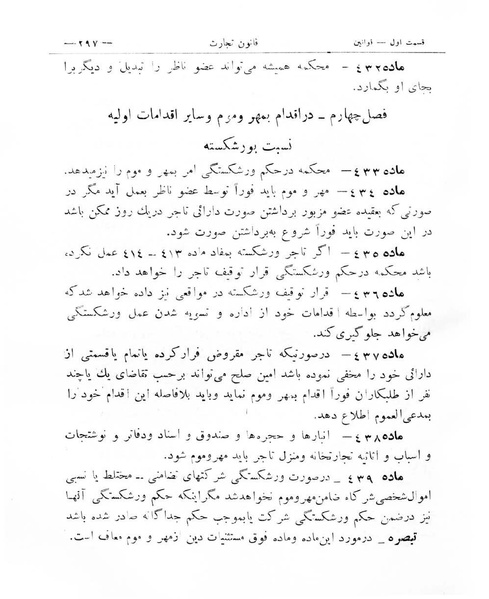 قسمت اول — قوانین قانون تجارت — ۲۹۷ —
ماده ۴۳۲ — محکمه همیشه می‌تواند عضو ناظر را تبدیل و دیگریرا
بجای او بگمارد.
فصل چهارم — در اقدام بمهر و موم و سایر اقدامات اولیه
نسبت بورشکسته
ماده ۴۳۳ — محکمه در حکم ورشکستگی امر بمهر و موم را نیز میدهد.
ماده ۴۳۴ — مهر و موم باید فوراً توسط عضو ناظر بعمل آید مگر در
صورتی‌که بعقیده عضو مزبور برداشتن صورت دارائی تاجر در یك روز ممکن باشد
در این صورت باید فوراً شروع به‌برداشتن صورت شود.
ماده ۴۳۵ — اگر تاجر ورشکسته بمفاد ماده ۴۱۳ — ۴۱۴ عمل نکرده
باشد محکمه در حکم ورشکستگی قرار توقیف تاجر را خواهد داد.
ماده ۴۳۶ — قرار توقیف ورشکسته در مواقعی نیز داده خواهد شد که
معلوم گردد بواسطه اقدامات خود از اداره و تسویه شدن عمل ورشکستگی
می‌خواهد جلوگیری کند.
ماده ۴۳۷ — در صورتیکه تاجر مقروض فرار کرده یا تمام یا قسمتی از
دارائی خود را مخفی نموده باشد امین صلح می‌تواند برحسب تقاضای یك یا چند
نفر از طلبکاران فوراً اقدام بمهر و موم نماید و باید بلافاصله این اقدام خود را
بمدعی‌العموم اطلاع دهد.
ماده ۴۳۸ — انبارها و حجره‌ها و صندوق و اسناد و دفاتر و نوشتجات
و اسباب و اثاثیه تجارتخانه و منزل تاجر باید مهر و موم شود.
ماده ۴۳۹ — در صورت ورشکستگی شرکتهای تضامنی — مختلط یا نسبی
اموال شخصی شرکاء ضامن مهر و موم نخواهد شد مگر اینکه حکم ورشکستگی آنها
نیز در ضمن حکم ورشکستگی شرکت یا بموجب حکم جداگانه صادر شده باشد
تبصره — در مورد این ماده و ماده فوق مستثنیات دین از مهر و موم معاف است.